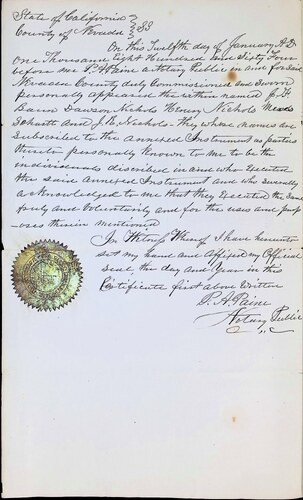 State of California }
County of Nevada } SS
On this Twelfth day of January A.D.
One Thousand Eight Hundred and Sixty Four
before me P. A. Paine a Notary Public in and for said
Nevada County duly Commissioned and Sworn
personally appeared the within named
Dawson Nichols Henry Nichols
and J. B. Nichols. they whose names are
subscribed to the annexed Instrument as parties
thereto personally known to me to be the
individuals discribed in and who executed
the said Annexed Instrument and who severally
acknowledged to me that they Executed the Same
freely and Voluntarily and for the uses and purp
oses therein mentioned
In Witness Whereof I have hereunto
set my hand and Affixed my Official
Seal, the day and Year in this
Certificate first above Written
P. A. Paine
Notary Public